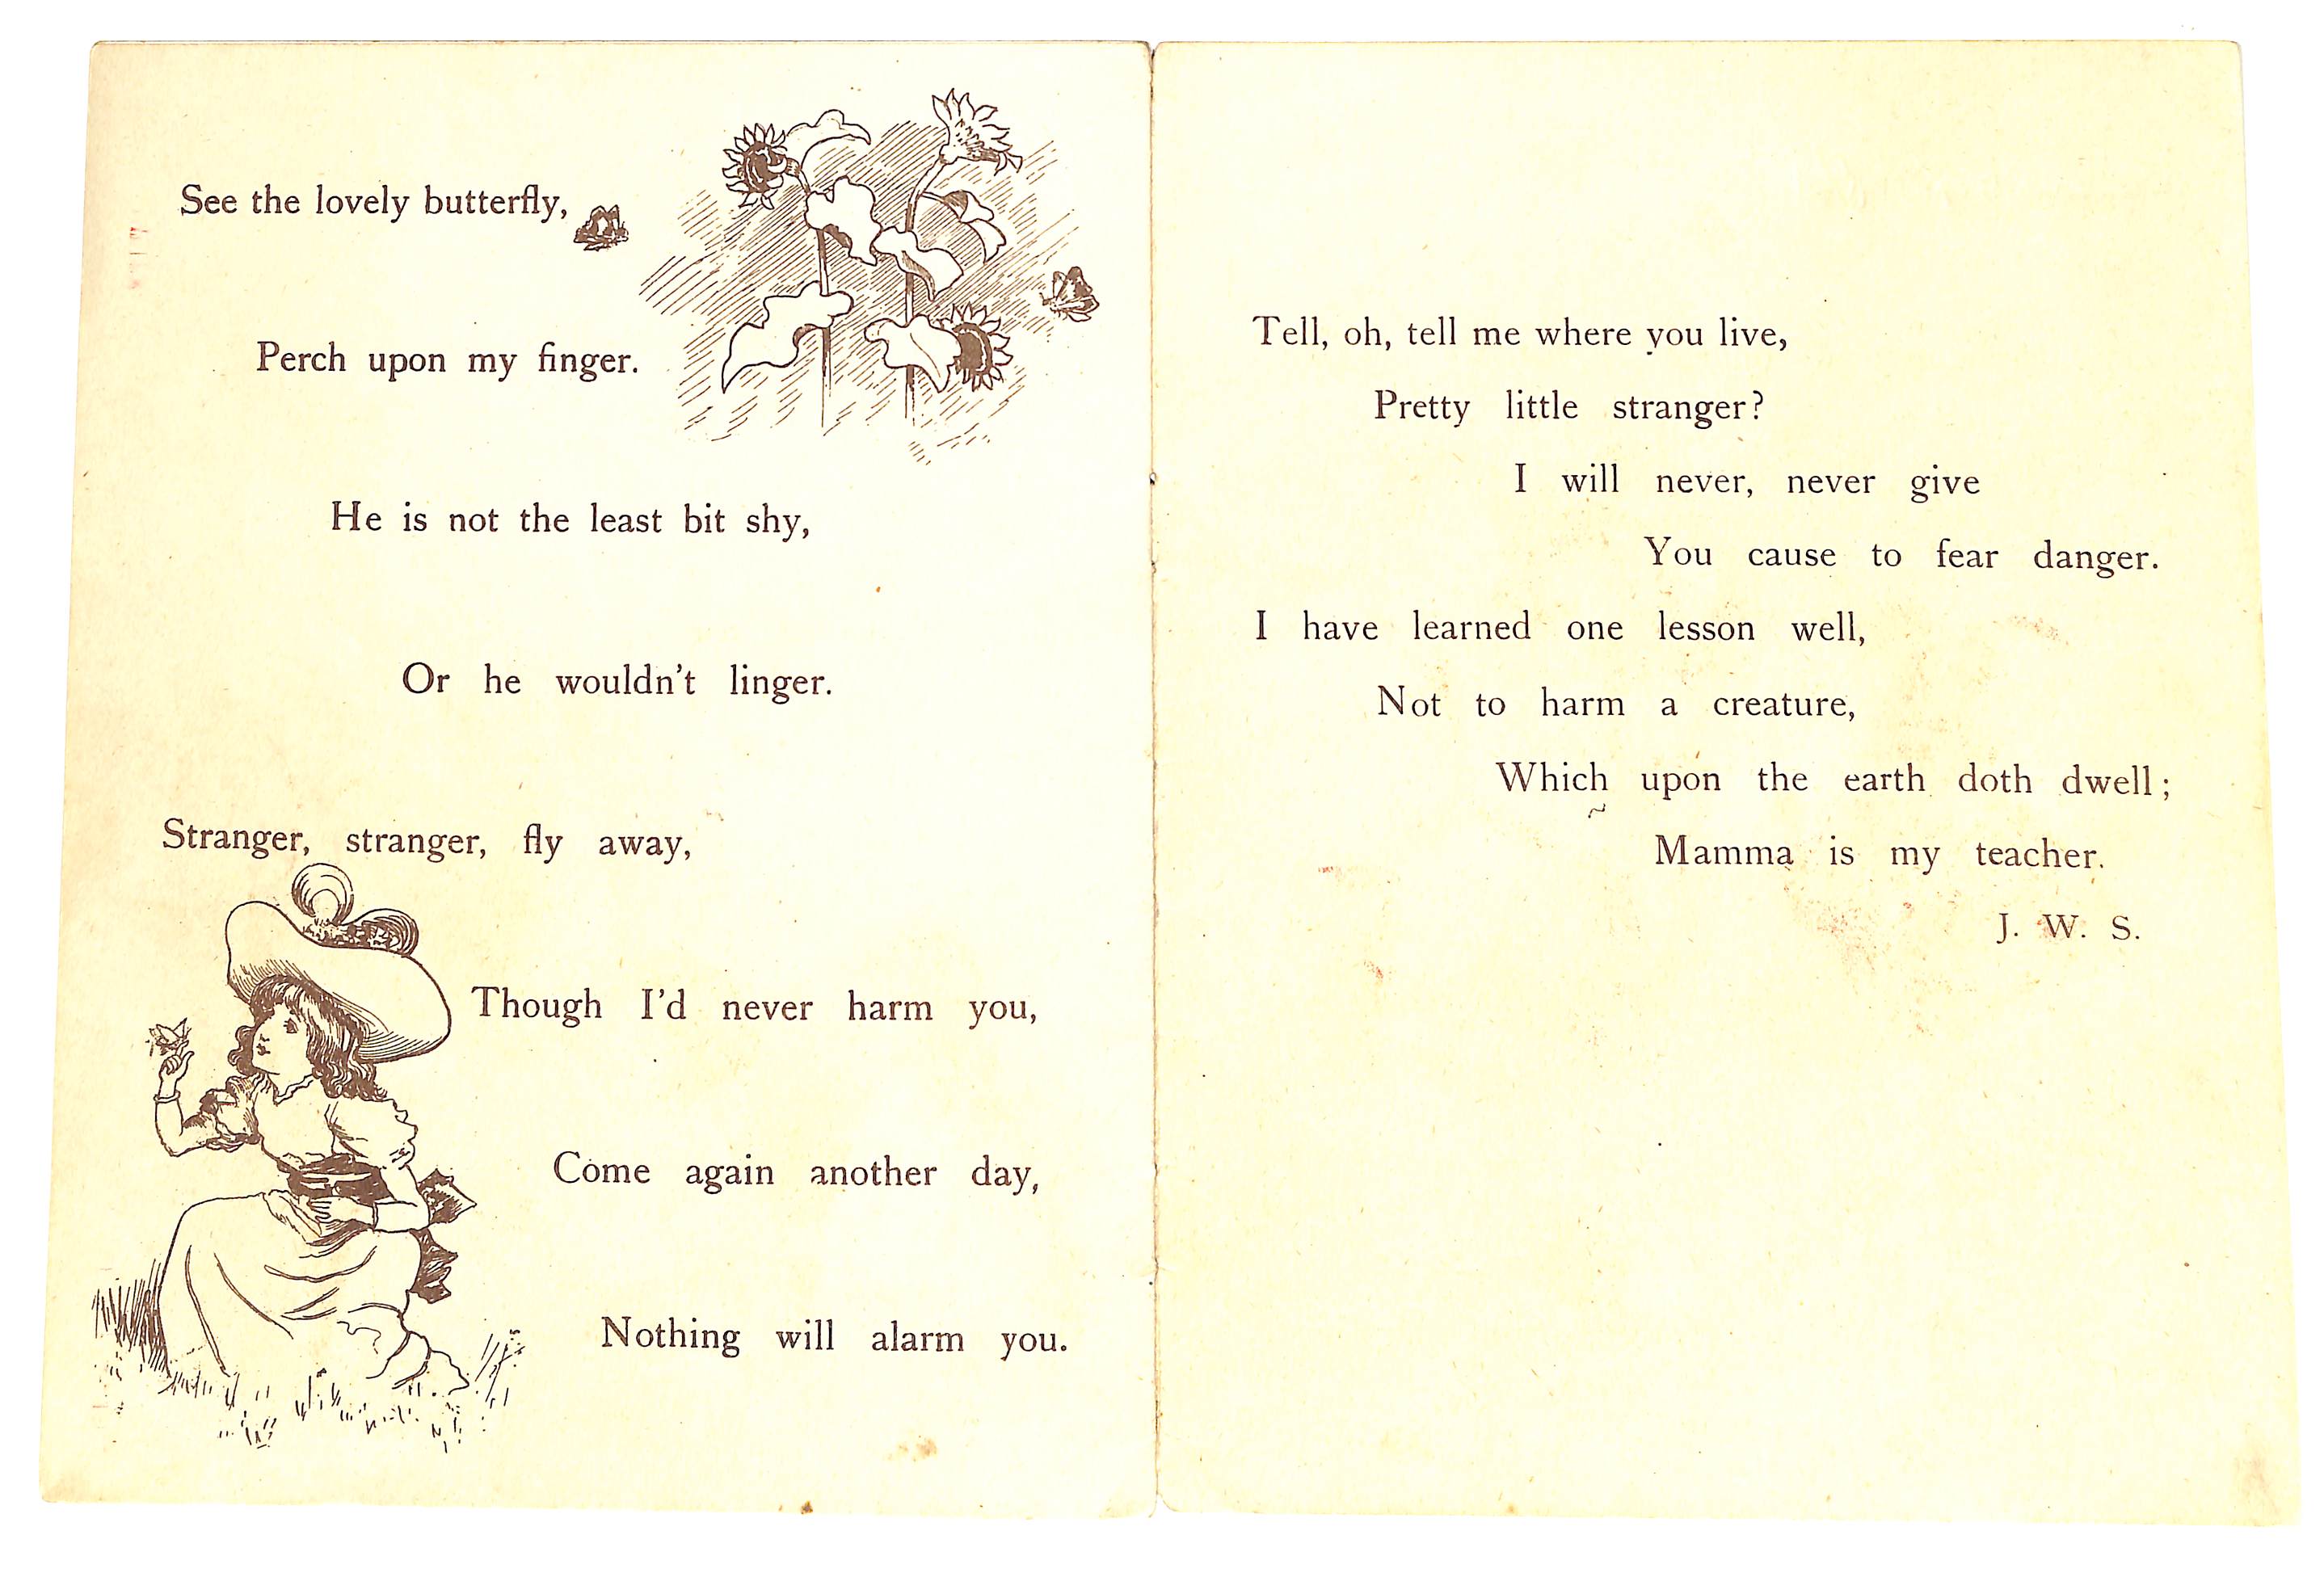 See the lovely butterfly,
Perch upon my finger.
He is not the least bit shy,
Or he wouldn't linger.
Stranger, stranger, fly away,
Though I'd never harm you,
Come again another day,
Nothing will alarm you.
Tell, oh, tell me where you live,
Pretty little stranger?
I will never, never give
You cause to fear danger.
I have learned one lesson well,
Not to harm a creature,
Which upon the earth doth dwell;
Mamma is my teacher.
J. W. S.